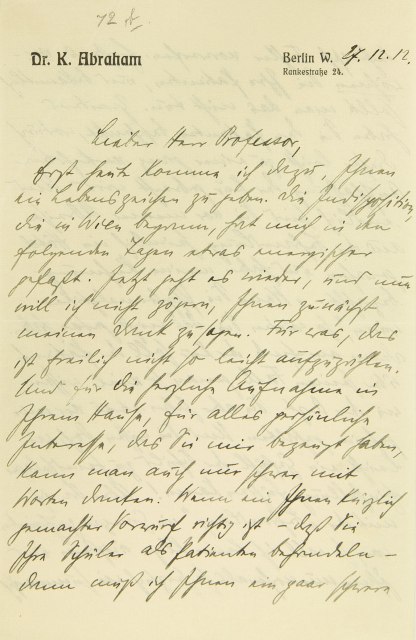 72 A
Dr. K. Abraham
Berlin W. 27.12.12.
Rankestraße 24.
Lieber Herr Professor,
Erst heute komme ich dazu, Ihnen
ein Lebenszeichen zu geben. Die Indisposition,
die in Wien begann, hat mich in den
folgenden Tagen etwas energischer
gefaßt. Jetzt geht es wieder, und nun
will ich nicht zögern, Ihnen zunächst
meinen Dank zu sagen. Für was, das
ist freilich nicht so leicht aufzuzählen.
Und für die herzliche Aufnahme in
Ihrem Hause, für alles persönliche
Interesse, das Sie mir bezeugt haben,
kann man auch nur schwer mit
Worten danken. Wenn ein Ihnen kürzlich
gemachter Vorwurf richtig ist – daß Sie
Ihre Schüler als Patienten behandeln –
dann muß ich Ihnen ein paar schwere